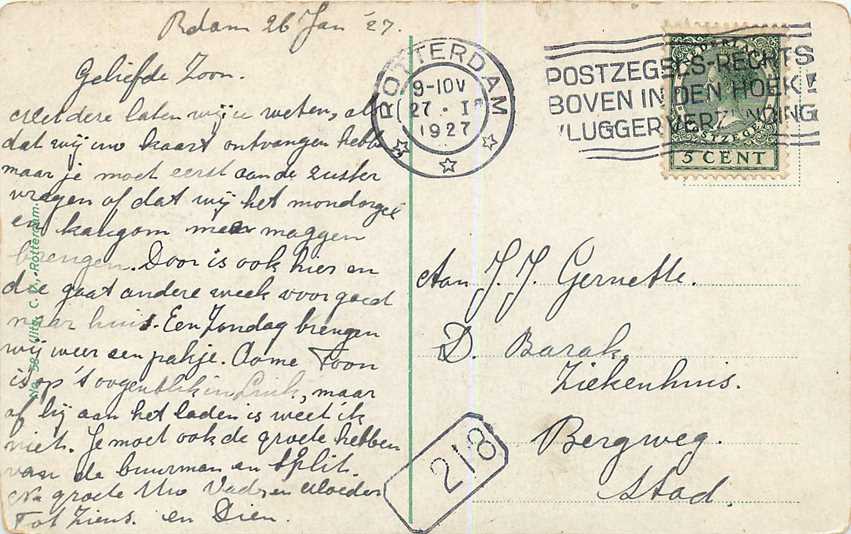 Rdam 26 Jan '27.
Geliefde Zoon.
Met deze laten wij u weten, als
dat wij uw kaart ontvangen hebb
maar je moet eerst aan de zuster
vragen of dat wij het mondorgel
en kangom mee maggen
brengen. Door is ook hier en
die gaat andere week voor goed
naar huis. Een Zondag brengen
wij weer een pakje. Oome Toon
is op 't oogenblik in Luik, maar
of hij aan het laden is weet ik
niet. Je moet ook de groete hebben
van de buurman en Split.
Na groete Uw Vader en Moeder
Tot Ziens. en Dien.
No. 58 Uitg. C. D., Rotterdam.
ROTTERDAM
9-10V
27 · I
1927
POSTZEGELS-RECHTS
BOVEN IN DEN HOEK!
VLUGGER VERZENDING
NEDERLAND
POSTZEGEL
5 CENT
Aan J. J. Gernette.
D. Barak.
Ziekenhuis.
Bergweg.
Stad.
218